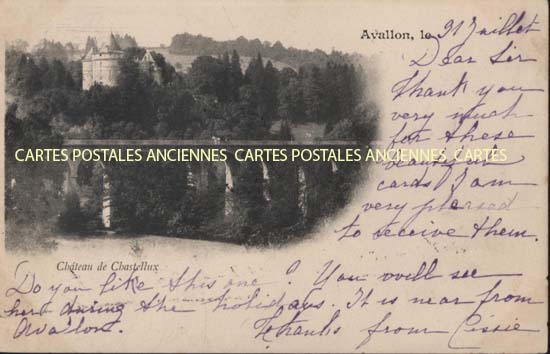 Avallon, le 31 Juillet
Dear Sir
Thank you
very much
for these
CARTES POSTALES ANCIENNES CARTES POSTALES ANCIENNES CARTES
cards I am
very pleased
to receive them.
Château de Chastellux
Do you like this one ? You will see
here during the holidays. It is near from
Avallon.
Thanks from Cissie